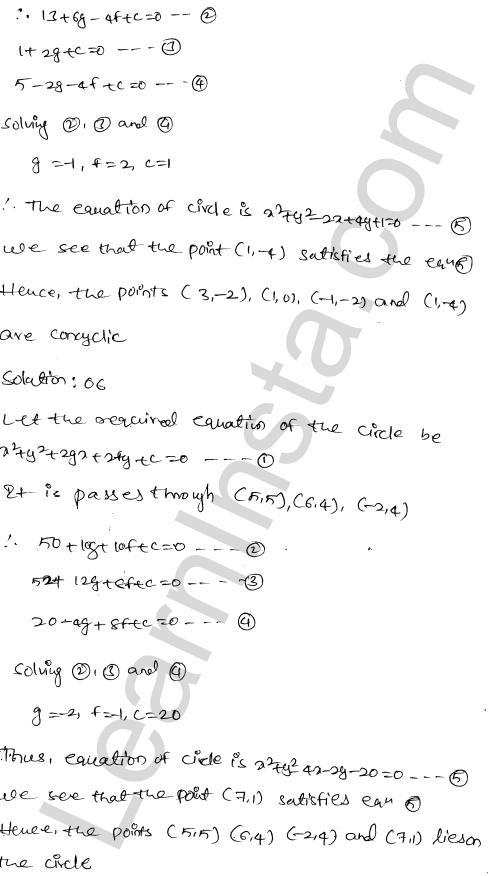 ∴ 13+6g-4f+c=0 --- ②
1+2g+c=0 ---- ③
5-2g-4f+c=0 --- ④
Solving ②, ③ and ④
g=-1, f=2, c=1
∴ The equation of circle is x²+y²-2x+4y+1=0 --- ⑤
we see that the point (1,-4) satisfies the eqn ⑤
Hence, the points (3,-2), (1,0), (-1,-2) and (1,-4)
are concyclic
Solution: 06
Let the required equation of the circle be
x²+y²+2gx+2fy+c=0 ---- ①
It is passes through (5,5), (6,4), (-2,4)
∴ 50+10g+10f+c=0 ---- ②
52+12g+8f+c=0 --- ③
20-4g+8f+c=0 ---- ④
Solving ②, ③ and ④
g=-2, f=-1, c=20
Thus, equation of circle is x²+y²-4x-2y-20=0 --- ⑤
we see that the point (7,1) satisfies eqn ⑤
Hence, the points (5,5) (6,4) (-2,4) and (7,1) lies on
the circle
LearnInsta.com